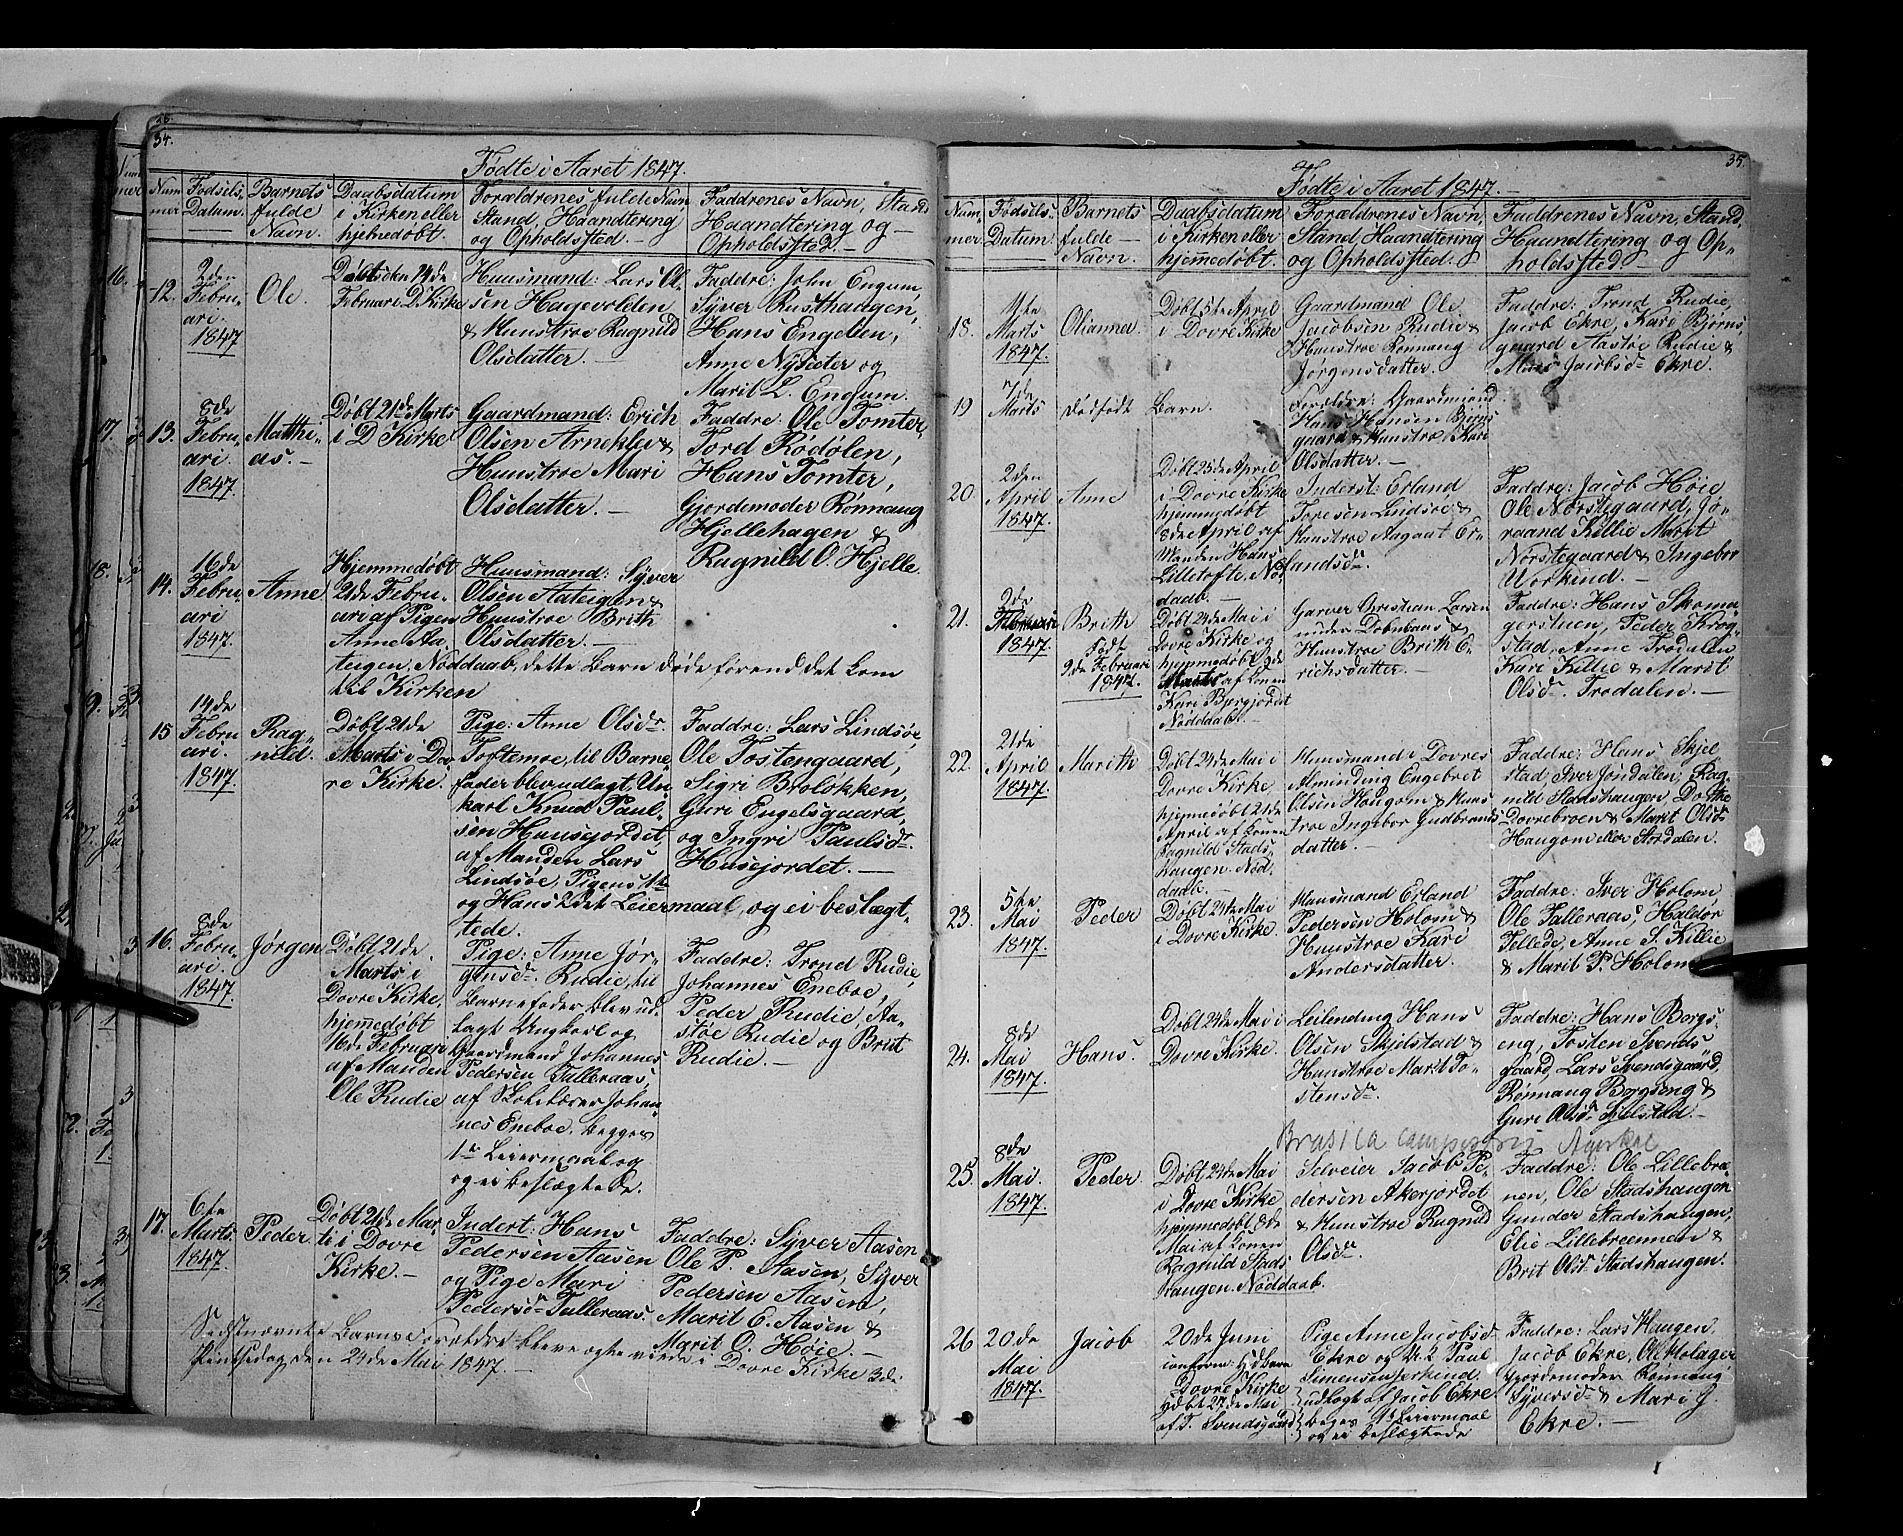 34.
Fødte i Aaret 1847.
Num
mer
Fødsels
Datum.
Barnets
fulde
Navn.
Daabsdatum
i Kirken eller
hjemedøbt.
Forældrenes fulde Navn
Stand, Haandtering
og Opholdssted. —
Faddrenes Navn, Stand
Haandtering og —
Opholdssted. —
12.
2den
Febru-
ari.
1847
Ole
Døbt den 21de
Februar i D. Kirke
Huusmand: Lars Ol-
sen Hagevolden
& Huustroe Ragnild
Olsdatter. —
Faddre: John Engum,
Syver Rusthaugen,
Hans Engelen,
Anne Nysæter og
Marit L. Engum.
13.
8de
Febru-
ari.
1847.
Matthi-
as. —
Døbt 21de Marts
i D Kirke
Gaardmand: Erich
Olsen Arneklev &
Huustroe Mari
Olsdatter. —
Faddre: Ole Tomter,
Tord Rødølen,
Hans Tomter,
Gjordemoder Rønnaug
Hjellehagen &
Ragnild O. Hjelle.
14.
16de
Febru-
ari
1847.
Anne
Hjemmedøbt
21de Febru-
ari af Pigen
Anne Aa-
Huusmand: Syver
Olsen Aateigen &
Huustroe Brith
Olsdatter. —
teigen, Nøddaab, dette Barn døde førend det kom
til Kirken
15
14de
Febru-
ari.
1847
Rag-
nild.
Døbt 21de
Marts i Dov-
re Kirke.
Pige: Anne Olsdr.
Toftemoe, til Barne-
fader blev udlagt Un-
karl Knud Paul-
sen Huusejordet,
af Manden Lars
Lindsøe, Pigens 1te
og Hans 2det Leiermaal, og ei beslægt-
tede.
Faddre: Lars Lindsøe,
Ole Tostengaard,
Sigri Broløkken,
Guri Engelsgaard,
og Ingri Paulsdr.
Husejordet. —
16.
8de
Febru-
ari.
1847.
Jørgen
Døbt 21de
Marts i
Dovre Kirke,
hjemedøbt
16de Februar
af Manden
Ole Rudie
Pige: Anne Jør-
gensdr. Rudie, til
Barnefader blev ud-
lagt Ungkarl og
Gaardmand Johannes
Pedersen Talleraas,
af Skolelærer Johan-
nes Eneboe. begges
1te Leiermaal og
og ei beslægtede.
Faddre: Trond Rudie,
Johannes Eneboe,
Peder Rudie, Aa-
støe Rudie og Brit
Rudie. —
17.
6te
Marts
1847.
Peder
Døbt 21de Mar-
ti i Dovre
Kirke. —
Indert: Hans
Pedersen Aasen
og Pige Mari
Pedersdr Talleraas.
Faddre: Syver Aasen
Ole P. Aasen, Syver
Pedersen Aasen,
Marit E. Aasen &
Marit O. Høie. —
Sidstnævnte Barns Forældre bleve ægteviede i Dovre Kirke 3de
Pintsedag den 24de Mai 1847. —
35
Fødte i Aaret 1847. —
Num
mer
Fødsels
Datum
Barnets
fulde —
Navn.
Daabsdatum
i Kirken eller
hjemedøbt.
Forældrenes Navn,
Stand Haandtering
og Opholdssted. —
Faddrenes Navn, Stand,
Haandtering og Op-
holdssted. —
18.
Marts
1847.
Olianna.
i Dovre Kirke
Gaardmand Ole
Jacobsen Rudie &
Huustroe Rønnaug
Jørgensdatter. —
Faddre: Trond Rudie,
Jacob Ekre, Kari Bjørns-
gaard Aastøe Rudie &
Mari Jacobsdr Ekre.
19
7de
Marts
dødfødt
Barn.
Forældre: Gaardmand
Hans Hansen Bjørns-
gaard & Huustroe Kari
Olsdatter. —
20
2den
April
1847.
Anne
Døbt 25de April
i Dovre Kirke
hjemmedøbt
8de April af
Manden Hans
Lilletofte. Nød-
daab.
Inderst: Erland
Iversen Lindsøe &
Huustroe Aagaat Er-
landsdr.
Faddre: Jacob Høie
Ole Norstegaard, Jø-
raand Killie Marit
Norstegaard & Ingebor
Workind. —
21.
2de
Februari
1847
Brith
Født
9de Februari
1847.
Døbt 24de Mai i
Dovre Kirke og
hjemmedøbt 2de
Marts af Konen
Kari Byrgjordet
Nøddaab. —
Garver Christian Larsen
under &
Huustroe Brith E-
richsdatter. —
Faddre: Hans Skoma-
gerstuen, Peder Krog-
stad, Anne Trodalen
Kari Killie & Marit
Olsdr. Trodalen. —
22.
21de
April
1847.
Marith
Døbt 24de Mai i
Dovre Kirke.
hjemmedøbt 21de
April af Konen
Ragnild Stads-
haugen. Nød-
daab. —
Huusmand i Dovres
Almending Engebret
Olsen Haugom & Huus-
troe Ingebor Gudbrands
datter. —
Faddre: Hans Skjel-
stad Iver Jøndalen, Rag-
nild Stadshaugen, Dorthe
Dovrebroen & Marit Olsdr
Haugom eller Stordalen.
23.
5te
Mai
1847.
Peder
Døbt 24de Mai
i Dovre Kirke.
Huusmand Erland
Pedersen Holom &
Huustroe Kari
Andersdatter.
Faddre: Iver Holom
Ole Talleraas, Haldor
Tellede, Anne S. Killie
& Marit P. Holom
24.
8de
Mai
1847.
Hans.
Døbt 24de Mai i
Dovre Kirke.
Leilending Hans
Olsen Skjelstad &
Huustroe Marit To-
stensdr.
Faddre: Hans Borgs-
eng, Tosten Svends-
gaard, Lars Svendsgaard,
Rønnaug Borgseng &
Guri Olsdr Sjelstad. —
Brasica campestris Agerkaal
25.
8de
Mai.
1847.
Peder
Døbt 24de Mai
i Dovre Kirke
hjemmedøbt 8de
Mai af Konen
Ragnild Stads-
haugen. Nøddaab.
Selveier Jacob Pe-
dersen Akerjordet
& Huustroe Ragnild
Olsdr
Faddre: Ole Lillebræ-
nen, Ole Stadshaugen
Gunder Stadshaugen,
Elie Lillebreennen &
Brit Olsdr Stadshaugen.
26
20de
Mai
1847.
Jacob
20de Juni
Dovre Kirke
Hdbt 27de Mai
af T. Svendsgaard
Pige Anne Jacobsd
Ekre og U.K. Paul
Simensen Jerkind.
udlagt af Jacob Ekre
beges 1te Leiermaal
og ei beslægtede
Faddre: Lars Haugen,
Jacob Ekre, Ole Holager
Gjordemoder Rønnaug
Syversdr & Mari J.
Ekre. —